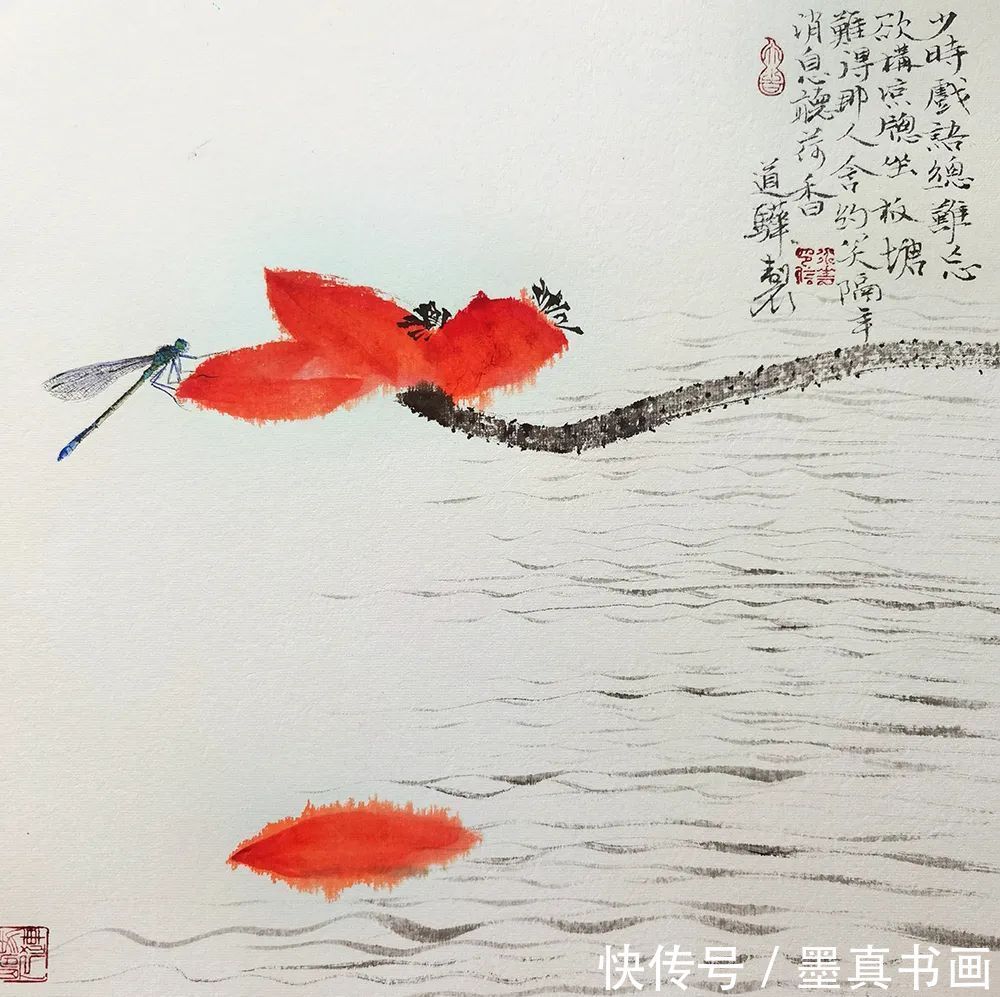 少時戲語總難忘
欲構凉牕坐板塘
難得那人含約笑隔年
消息聽荷香
道驊製
快传号 / 墨真书画